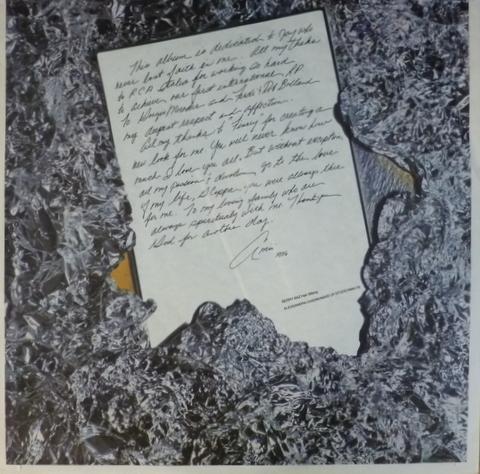 This album is dedicated to Jay who
never lost faith in me. All my thanks
to RCA Italia for working so hard
to achieve our first international LP.
To Giorgio Moroder and Ferdi & Bolland
my deepest respect and affection.
All my thanks to "Fenury" for creating a
new look for me. You will never know how
much I love you all. But without exception
all my passion & devotion, go to the love
of my life, Steppe - you will always there
for me. To my loving family who are
always spiritually with me. Thank you
God for another day.
1986